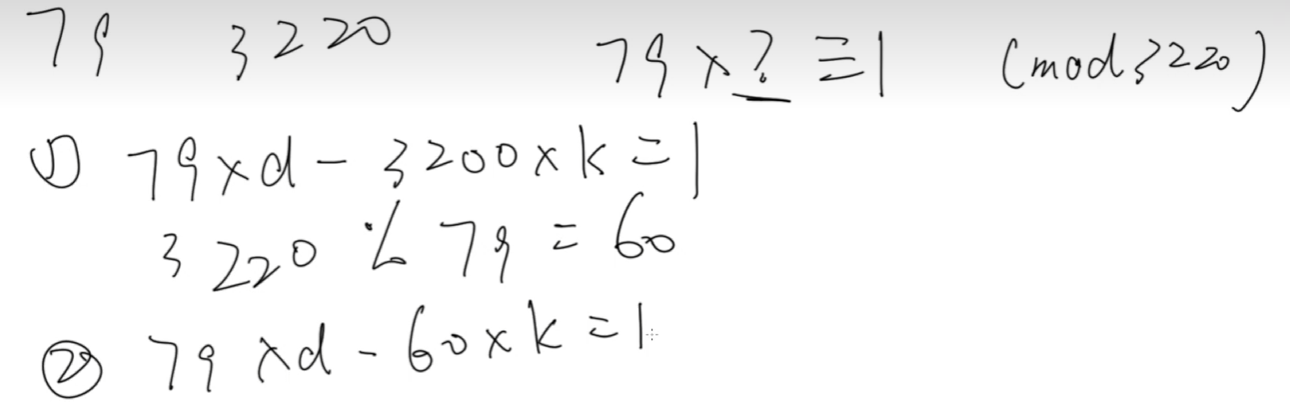 79 3220 79 × ? ≡ 1 (mod 3220)
① 79 × d - 3200 × k = 1
3220 % 79 = 60
② 79 × d - 60 × k = 1